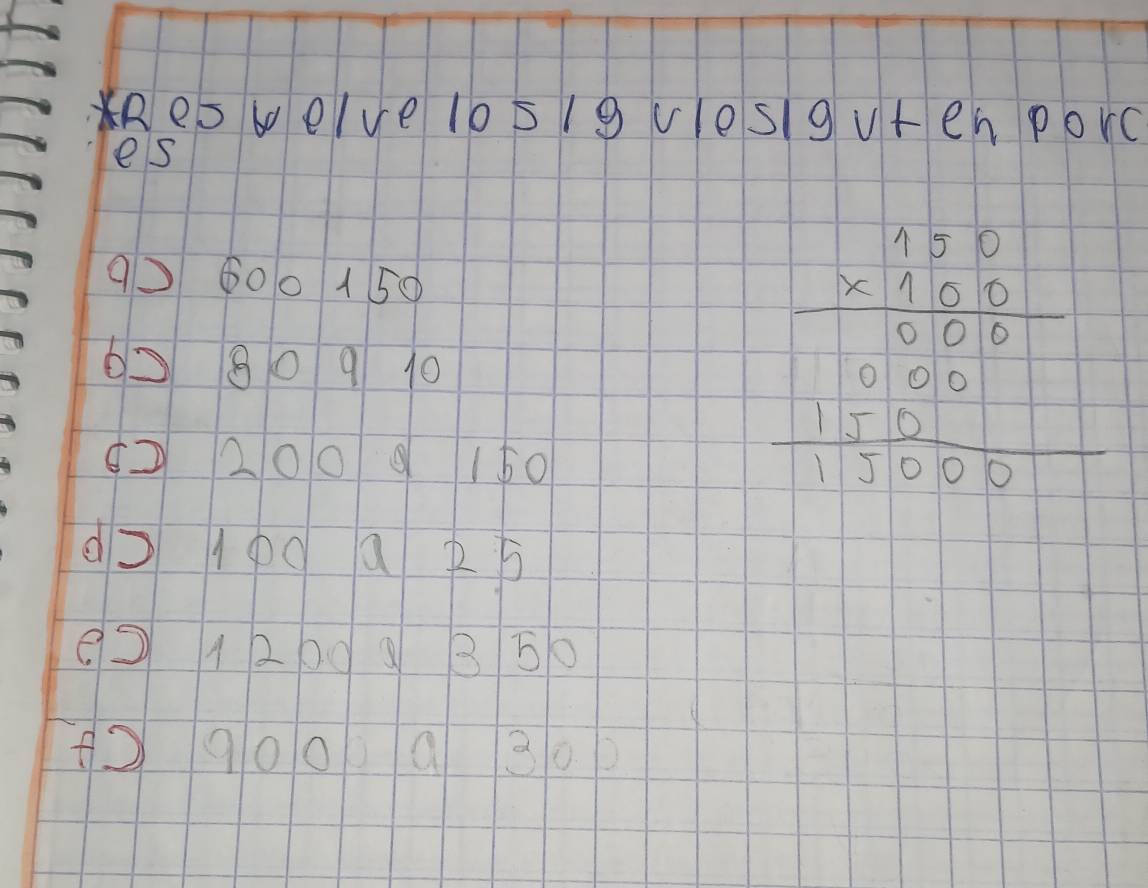 *Resuelve lo sigvlosigvten porc
es
a) 600 150
b) 80 a 10
c) 200 a 150
d) 100 a 25
e) 1200 a 350
f) 9000 a 300
150
x 100
000
000
150
15000